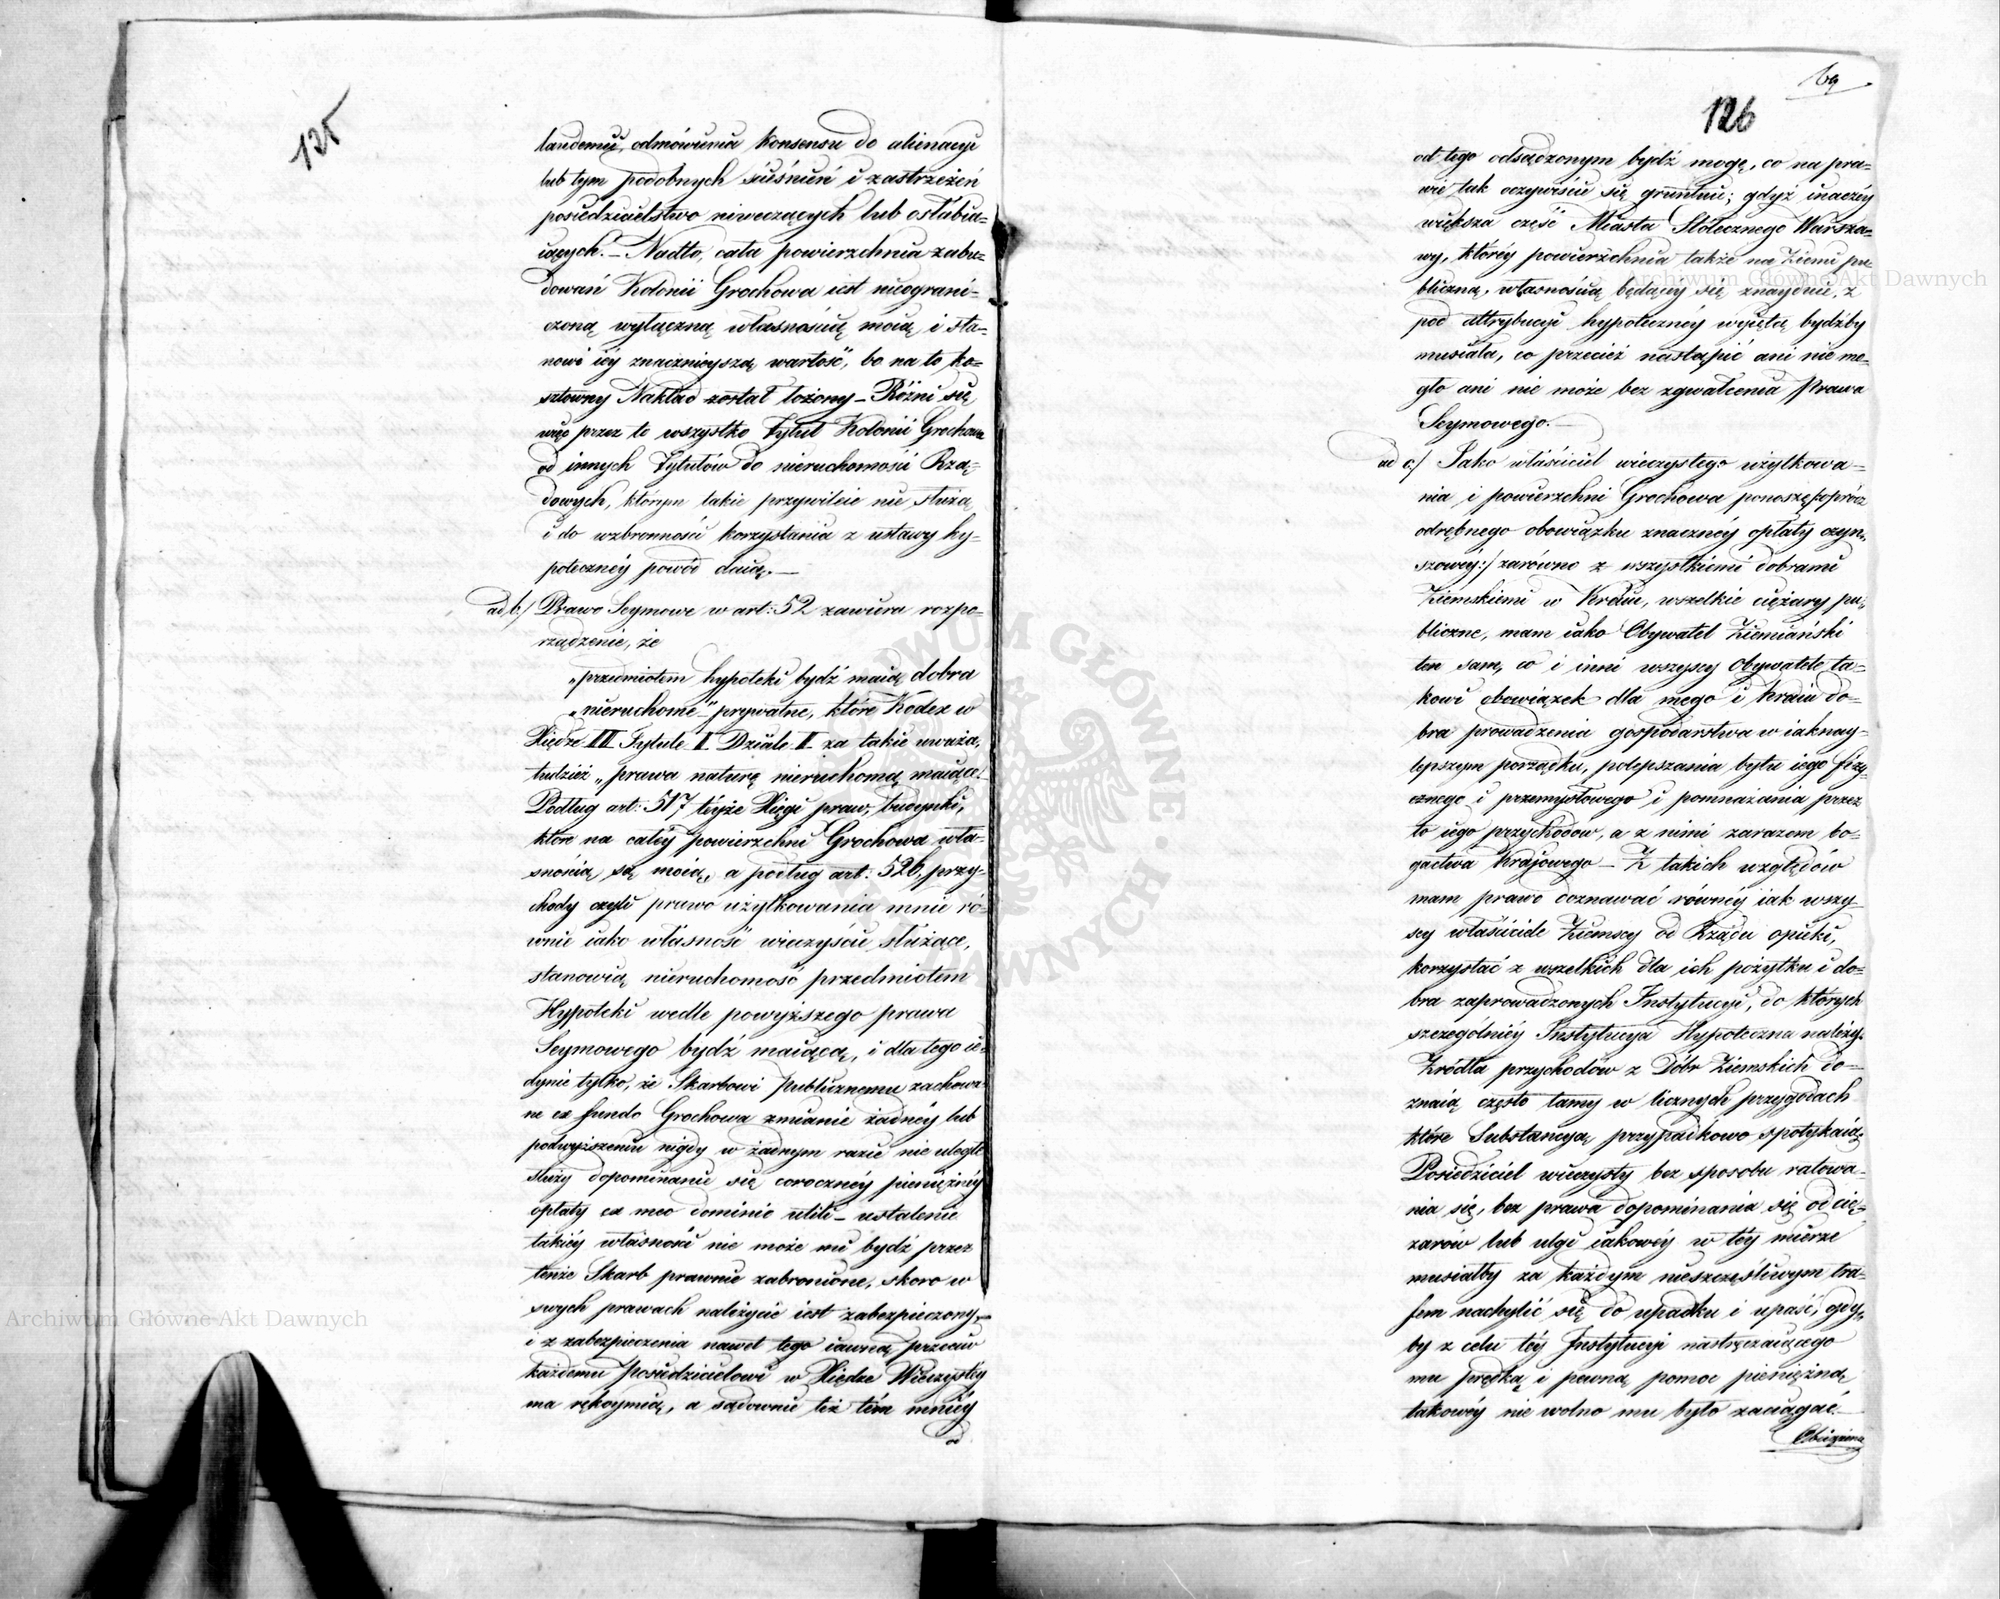 125
laudemii, odmówienia konsensu do alienacyi
lub tym podobnych ścieśnień i zastrzeżeń
posiedzicielstwo niweczących lub osłabia-
iących. – Nadto, cała powierzchnia zabu-
dowań Kolonii Grochowa iest nieograni-
czoną wyłączną własnością moią i sta-
nowi iey znacznieyszą wartość, bo na to ko-
sztowny Nakład został łożony – Różni się
więc przez to wszystko Tytuł Kolonii Grochowa
od innych Tytułów do nieruchomości Rzą-
dowych, którym takie przywileie nie służą
i do wzbronności korzystania z ustawy hy-
poteczney powód daią. –
ad b./ Prawo Seymowe w art: 52 zawiera rozpo-
rządzenie, że
„przedmiotem hypoteki bydź maią dobra
„nieruchome" prywatne, które Kodex w
Xiędze III Tytule I Dziale I za takie uważa,
tudzież „prawa naturę nieruchomą maiące.
Podług art: 517 téyże Xięgi praw, budynki,
które na całéy powierzchni Grochowa wła-
snością są moią, a podług art: 526, przy-
chody czyli prawo użytkowania mnie ró-
wnie iako własność wieczyście służące,
stanowią nieruchomość przedmiotem
Hypoteki wedle powyższego prawa
Seymowego bydź maiącą, i dla tego ie-
dynie tylko, że Skarbowi Publicznemu zachowa-
ne ex fundo Grochowa zmianie żadnéy lub
podwyższeniu nigdy w żadnym razie nie uległe
służy dopominanie się corocznéy pieniężnéy
opłaty ex meo dominio utili – ustalenie
takiéy własności nie może mi bydź przez
tenże Skarb prawnie zabronione, skoro w
swych prawach należycie iest zabezpieczony,
i z zabezpieczenia nawet tego iawną przeciw
każdemu Posiedzicielowi w Xiędze Wieczystéy
ma rękoymią, a sądownie też tém mniéy
od
69
126
od tego odsądzonym bydź mogę, co na pra-
wie tak oczywiście się gruntuie; gdyż inaczéy
większa część Miasta Stołecznego Warsza-
wy, któréy powierzchnia także na Ziemi pu-
bliczną własnością będącéy się znayduie, z
pod attrybucyi hypotecznéy wyięta bydźby
musiała, co przecież nastąpić ani nie mo-
gło ani nie może bez zgwałcenia Prawa
Seymowego. –
ad c./ Jako właściciel wieczystego użytkowa-
nia i powierzchni Grochowa ponoszę /:oprócz
odrębnego obowiązku znacznéy opłaty czyn-
szowéy:/ zarówno z wszystkiemi dobrami
Ziemskiemi w Kraiu, wszelkie ciężary pu-
bliczne, mam iako Obywatel Ziemiański
ten sam, co i inni wszyscy Obywatele ta-
kowi obowiązek dla mego i kraiu do-
bra prowadzenia gospodarstwa w iaknay-
lepszym porządku, polepszania bytu iego fizy-
cznego i przemysłowego i pomnażania przez
to iego przychodów, a z nimi zarazem bo-
gactwa krajowego – Z takich względów
mam prawo doznawać równéy iak wszy-
scy właściciele Ziemscy od Rządu opieki,
korzystać z wszelkich dla ich pożytku i do-
bra zaprowadzonych Instytucyi, do których
szczególniéy Instytucya Hypoteczna należy.
Źródła przychodów z Dóbr Ziemskich do-
znaią często tamy w licznych przygodach
które Substancyą przypadkowo spotykaią.
Posiedziciel wieczysty bez sposobu ratowa-
nia się, bez prawa dopominania się od cię-
żarów lub ulgi iakowéy w téy mierze
musiałby za każdym nieszczęśliwym tra-
fem nachylić się do upadku i upaść, gdy-
by z celu téy Instytucyi nastręczaiącego
mu prędką i pewną pomoc pieniężną
takowéy nie wolno mu było zaciągać. –
Archiwum Główne Akt Dawnych
Archiwum Główne Akt Dawnych